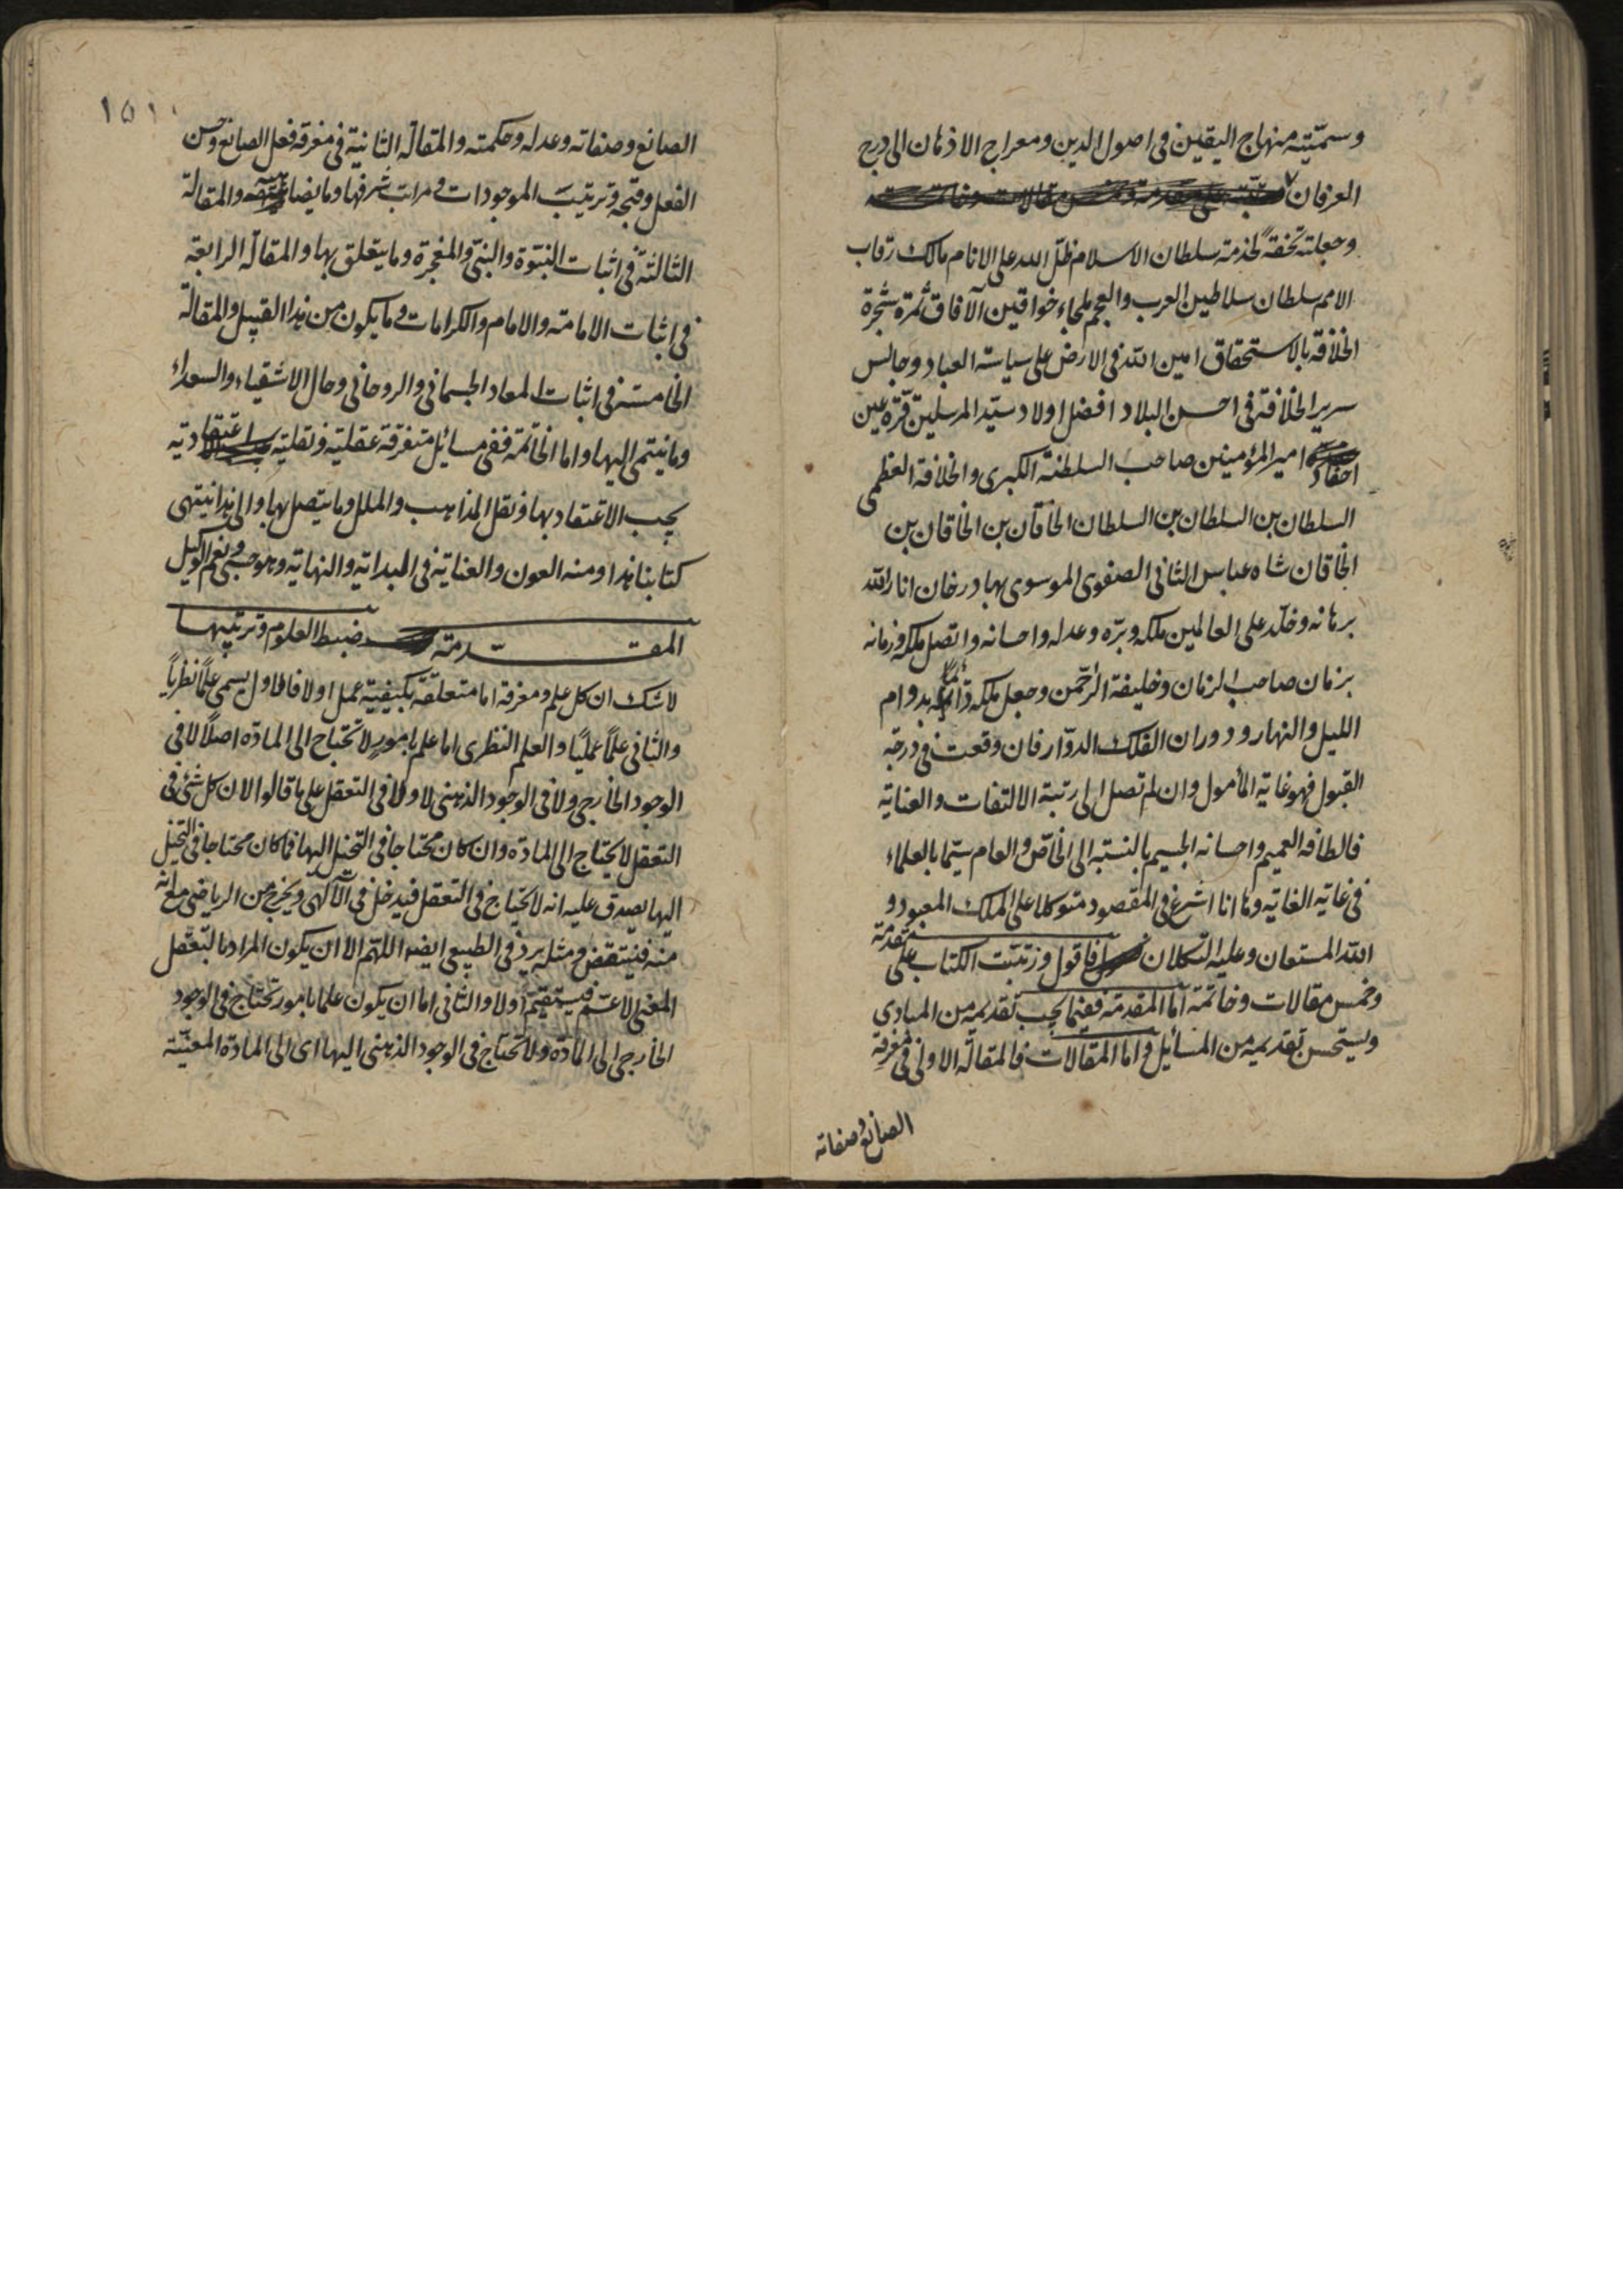 وسمّيته منهاج اليقين في اصول الدين ومعراج الاذهان الى درج
العرفان
وجعلته تحفةً لخدمة سلطان الاسلام ظلّ الله على الانام مالك رقاب
الامم سلطان سلاطين العرب والعجم ملجاء خواقين الآفاق ثمرة شجرة
الخلافة بالاستحقاق امين الله في الارض على سياسة العباد وجالس
سرير الخلافة في احسن البلاد افضل اولاد سيّد المرسلين قرّة عين
احفاد امير المؤمنين صاحب السلطنة الكبرى والخلافة العظمى
السلطان بن السلطان بن السلطان الخاقان بن الخاقان بن
الخاقان شاه عباس الثاني الصفوي الموسوي بهادر خان انار الله
برهانه وخلّد على العالمين ملكه وبرّه وعدله واحسانه واتصل ملكه وزمانه
بزمان صاحب الزمان وخليفة الرحمن وجعل ملكه دائما بدوام
الليل والنهار ودوران الفلك الدوّار فان وقعت في درجة
القبول فهو غاية المأمول وان لم تصل الى رتبة الالتفات والعناية
فالطافه العميم واحسانه الجسيم بالنسبة الى الخاصّ والعام سيّما بالعلماء
في غاية الغاية وها انا اشرع في المقصود متوكلا على الملك المعبود و
الله المستعان وعليه التكلان فاقول ورتبت الكتاب على مقدمة
وخمس مقالات وخاتمة اما المقدمة ففيما يجب تقديمه من المبادي
ويستحسن تقديمه من المسائل واما المقالات فالمقالة الاولى في معرفة
الصانع وصفاته
١٥١
الصانع وصفاته وعدله وحكمته والمقالة الثانية في معرفة فعل الصانع وحسن
الفعل وقبحه وترتيب الموجودات و مراتب شرفها وما يضا والمقالة
الثالثة في اثبات النبّوة والنبيّ والمعجزة وما يتعلق بها والمقالة الرابعة
في اثبات الامامة والامام والكرامات وما يكون من هذا القبيل والمقالة
الخامسة في اثبات المعاد الجسماني والروحاني وحال الاشقياء والسعداء
وما ينتمى اليها واما الخاتمة ففي مسائل متفرقة عقلية ونقلية اعتقادية
يجب الاعتقاد بها ونقل المذاهب والملل وما يتصل بها والى هذا ينتهى
كتابنا هذا ومنه العون والعناية في البداية والنهاية وهو حسبي ونعم الوكيل
المقدمة ضبط العلوم وترتيبها
لا شك ان كل علم ومعرفة اما متعلقة بكيفية عمل اولا فالاول يسمى علماً نظرياً
والثاني علماً عمليًا والعلم النظرى اما علم بامور لا تحتاج الى المادة اصلاً لا في
الوجود الخارجي ولا في الوجود الذهني لا في التعقل على ما قالوا لان كل شئ في
التعقل لا يحتاج الى المادة وان كان محتاجا في التخيل اليها فما كان محتاجا في التخيل
اليها يصدق عليه انه لا يحتاج في التعقل فيدخل في الآلهى ويخرج من الرياضى مع انه
منه فينتقض ومثله يرد في الطبيعى ايضا اللهم الا ان يكون المراد بالتعقل
المعنى الاعم فيستقيم اولا والثاني اما ان يكون علما بامور تحتاج في الوجود
الخارجي الى المادة ولا تحتاج في الوجود الذهني اليها اى الى المادة المعينة